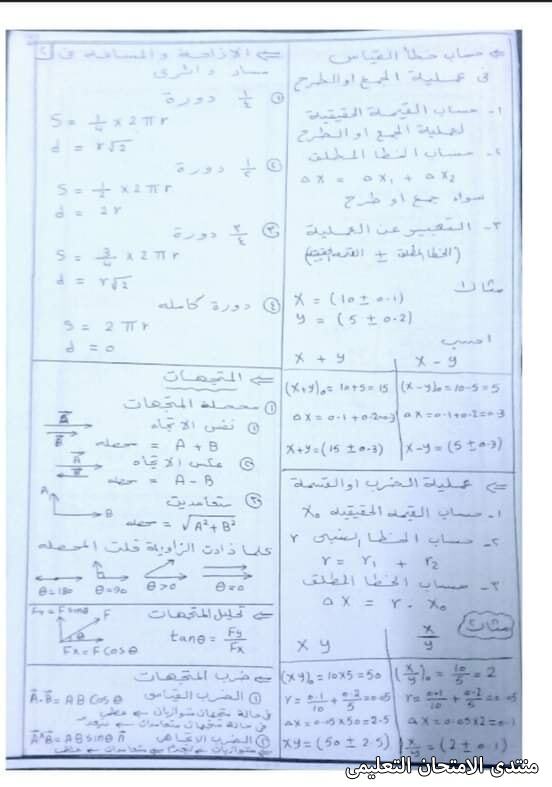 ⇐ حساب خطأ القياس
فى عملية الجمع او الطرح
١- حساب القيمة الحقيقية
لعملية الجمع او الطرح
٢- حساب الخطأ المطلق
Δx = Δx₁ + Δx₂
سواء جمع او طرح
٣- التعبير عن العملية
± الخطأ المطلق)
مثال
X = (10 ± 0.1)
y = (5 ± 0.2)
احسب
X + y
(X+y)₀ = 10+5 = 15
Δx = 0.1+0.2=0.3
X+y = (15 ± 0.3)
X - y
(X-y)₀ = 10-5 = 5
Δx = 0.1+0.2=0.3
X-y = (5 ± 0.3)
⇐ عملية الضرب او القسمة
١- حساب القيمه الحقيقيه X₀
٢- حساب الخطأ النسبى r
r = r₁ + r₂
٣- حساب الخطأ المطلق
Δx = r . x₀
مثال
X y
(xy)₀ = 10x5 = 50
r = 0.1/10 + 0.2/5 = 0.05
Δx = 0.05x50 = 2.5
xy = (50 ± 2.5)
x/y
(x/y)₀ = 10/5 = 2
r = 0.1/10 + 0.2/5 = 0.05
Δx = 0.05x2 = 0.1
x/y = (2 ± 0.1)
⇐ الازاحة و المسافه فى
مسار دائرى
① ١/٤ دورة
S = 1/4 x 2πr
d = r√2
② ١/٢ دورة
S = 1/2 x 2πr
d = 2r
③ ٣/٤ دورة
S = 3/4 x 2πr
d = r√2
④ دورة كامله
S = 2πr
d = 0
⇐ المتجهات
① محصلة المتجهات
① نفس الاتجاه
A B
محصله = A + B
② عكس الاتجاه
A B
محصله = A - B
③ متعامدين
A B
محصله = √A² + B²
كلما ذادت الزاوية قلت المحصله
θ=180 θ=90 θ>0 θ=0
⇐ تحليل المتجهات
Fy = F sinθ
F
θ
Fx = F cosθ
tanθ = Fy/Fx
⇐ ضرب المتجهات
① الضرب القياسى
A.B = AB cosθ
فى حالة متجهان متوازيان ⇐ عظمى
فى حالة متجهان متعامدان ⇐
② الضرب الاتجاهى
AxB = AB sinθ n
متوازيان ⇐ متعامدان ⇐ عظمى
منتدى الامتحان التعليمى